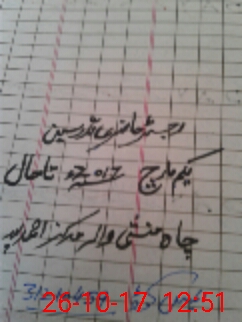 رجسٹر حاضری مدرسین
یکم مارچ 2017ء تا حال
چاہ منشی والہ مرکز احمد پور
26-10-17 12:51